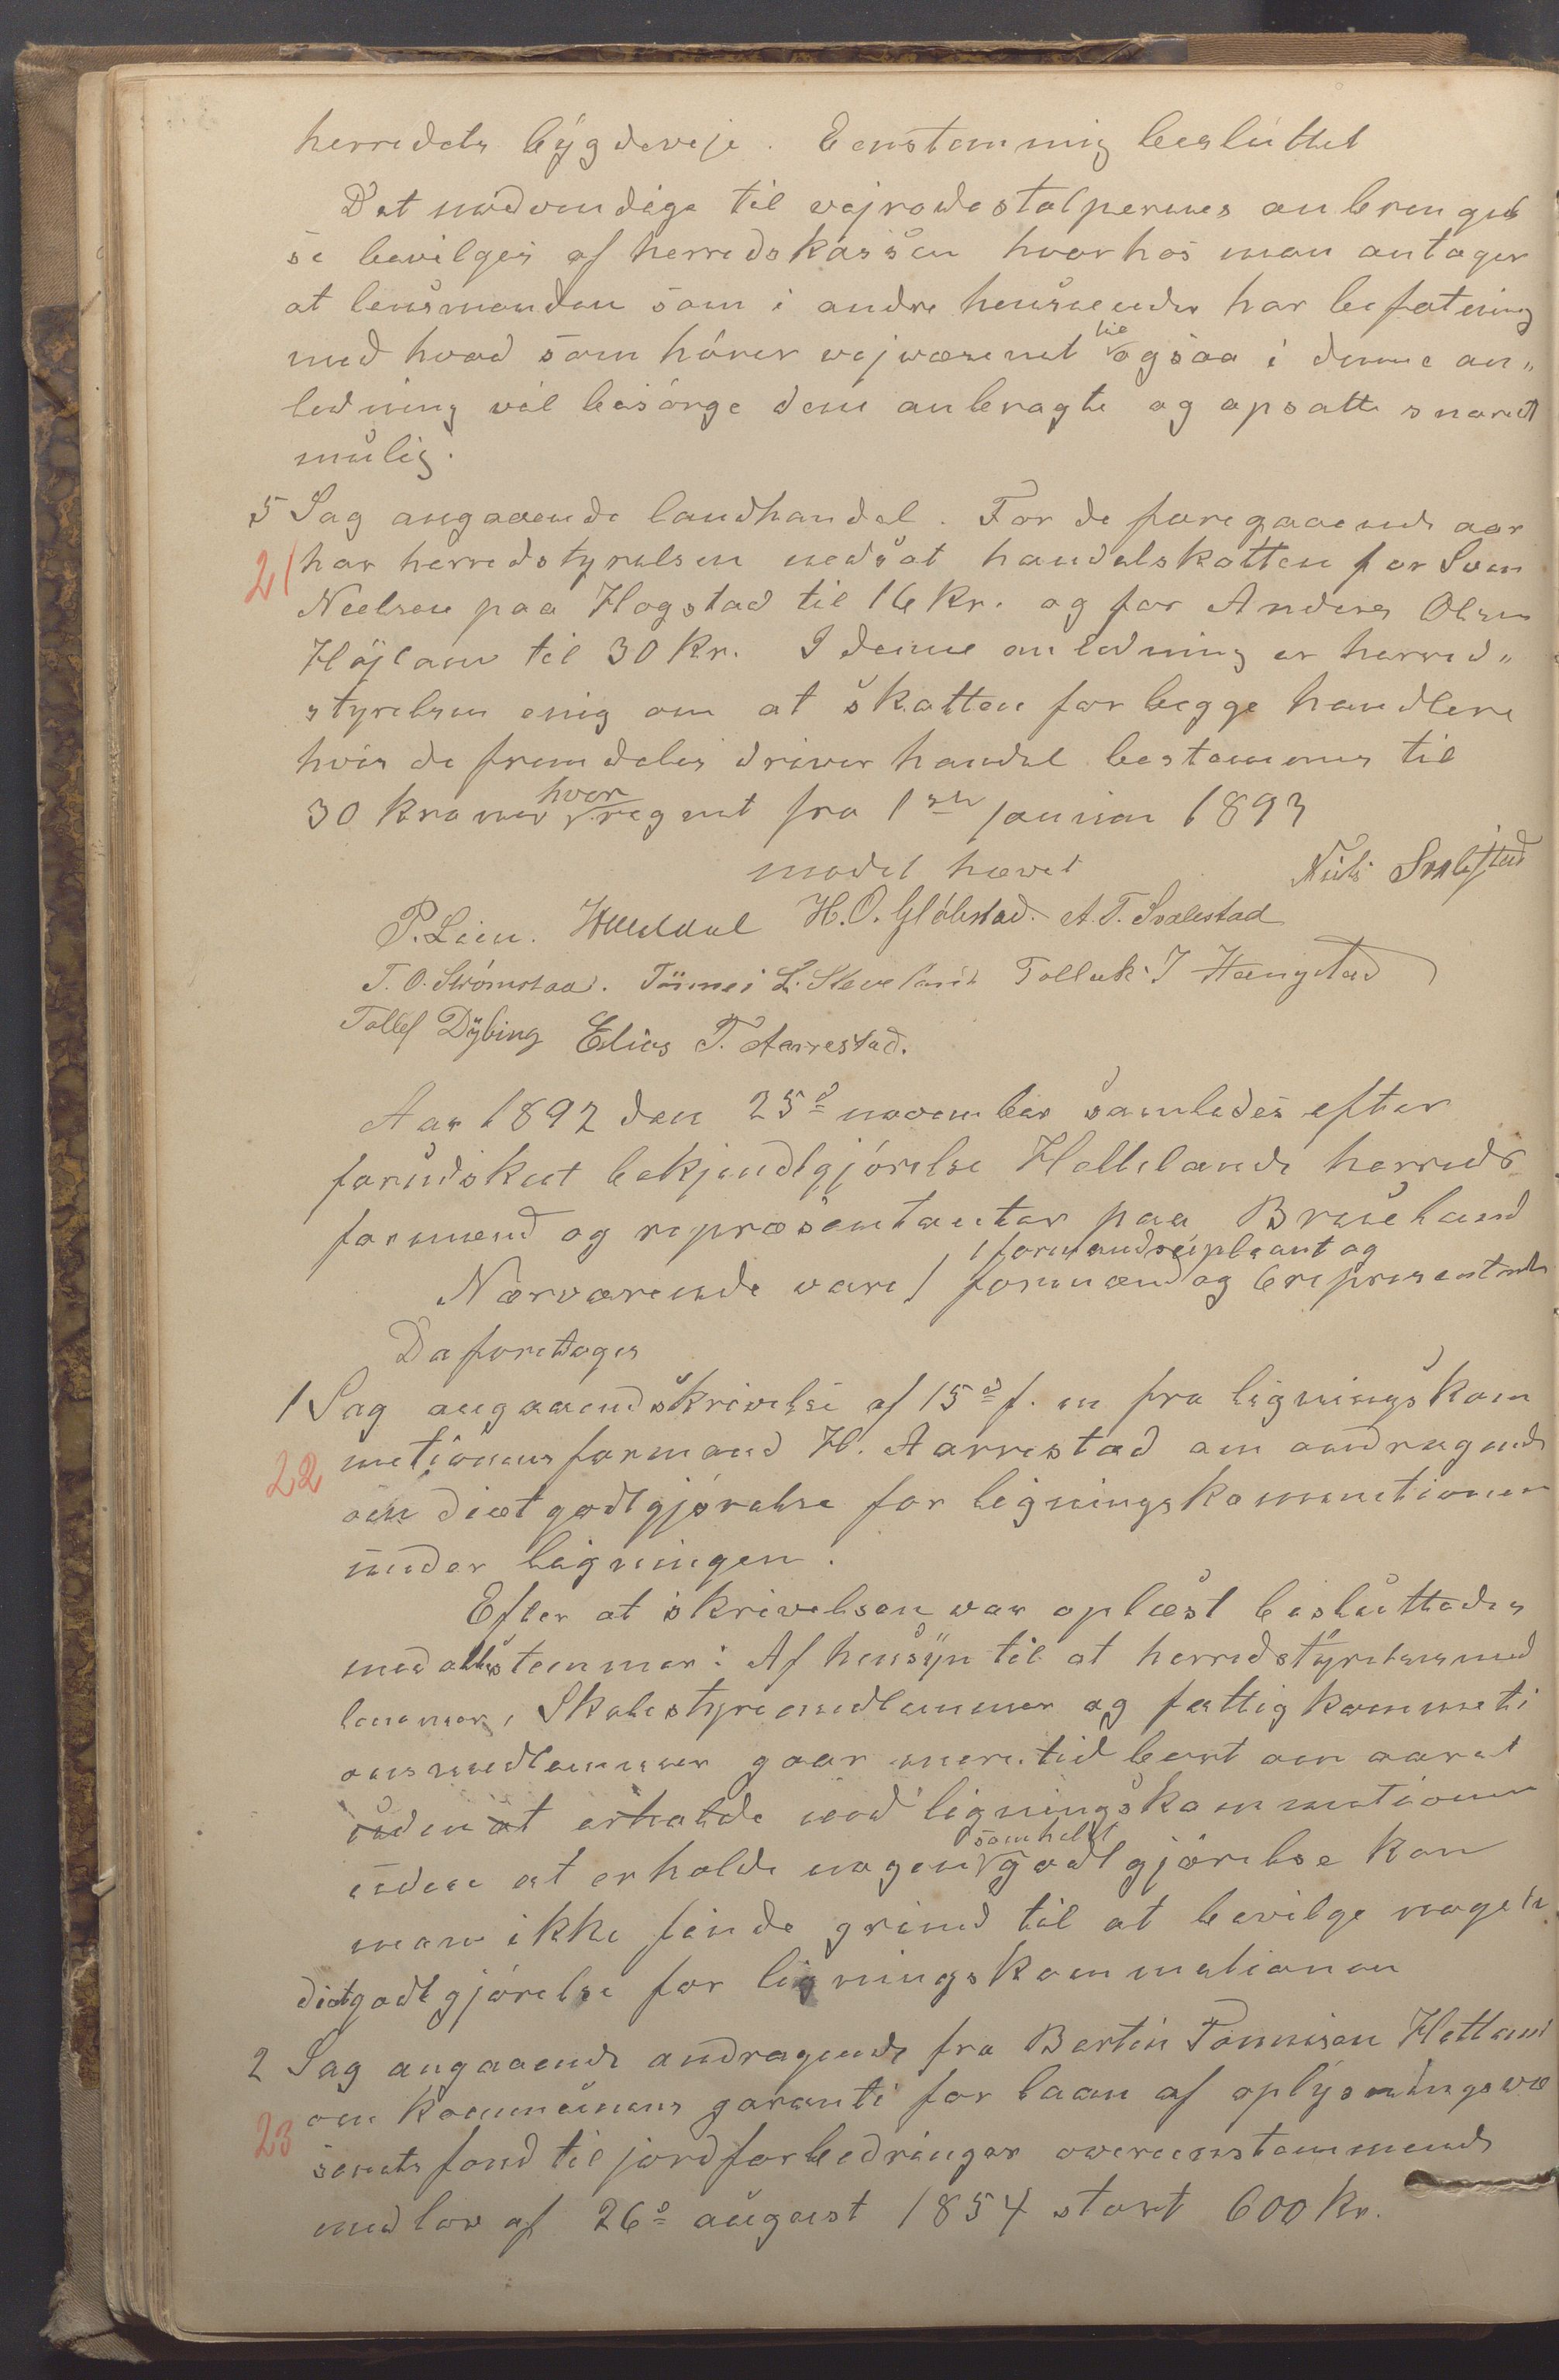 herredets bygdeveje. Eenstemmig besluttet
Det nødvendige til vejrodestolpernes anbringel
se bevilges af herredskassen hvorhos man antager
at lensmanden som i andre henseender har befatning
med hvad som hører vejvæsenet til ogsaa i denne an„
ledning vil besørge dem anbragte og opsatte snarest
mulig.
5 Sag angaaende landhandel. For de foregaaende aar
21 har herredstyrelsen nedsat handelskatten for Sven
Neelsen paa Hogstad til 16 kr. og for Anders Olsen
Højland til 30 kr. I denne anledning er herred„
styrelsen enig om at skatten for begge handlere
hvis de fremdeles driver handel bestemmes til
30 kroner hver regnet fra 1ste januar 1893
mødet hævet
Nils Svalestad
P. Lien. H. O. Gløbstad. A. T. Svalestad
T. O. Strømstad. Tønnes L. Sleveland Tollak J Hængstad
Tollef Dybing Elias T. Aarrestad.
Aar 1892 den 25d november samledes efter
forudskeet bekjendtgjørelse Hellelands herreds
formænd og repræsentanter paa Brueland
Nærværende vare 1 formænd 1 formandsupleant og og 6 representanter
Da foretoges
1 Sag angaaend skrivelse af 15d f. m fra ligningskom
22 metionens formand H. Aarrestad om andragende
om diætgodtgjørelse for ligningskommetionen
under ligningen.
Efter at skrivelsen var oplæst besluttedes
med alle stemmer: Af hensyn til at herredstyrelsesmed
lemmer, Skolestyremedlemmer og fattigkommeti
onsmedlemmer gaar mere tid bort om aaret
uden at erholde end ligningskommetionen
uden at erholde nogen somhelst godtgjørelse kan
man ikke finde grund til at bevilge nogen
diætgodtgjørelse for ligningskommetionen
2 Sag angaaende andragende fra Bertin Tønnisen Hetland
23 om kommunens garanti for laan af oplysningsvæ
senets fond til jordforbedringer overeenstemmende
med lov af 26d august 1854 stort 600 kr.